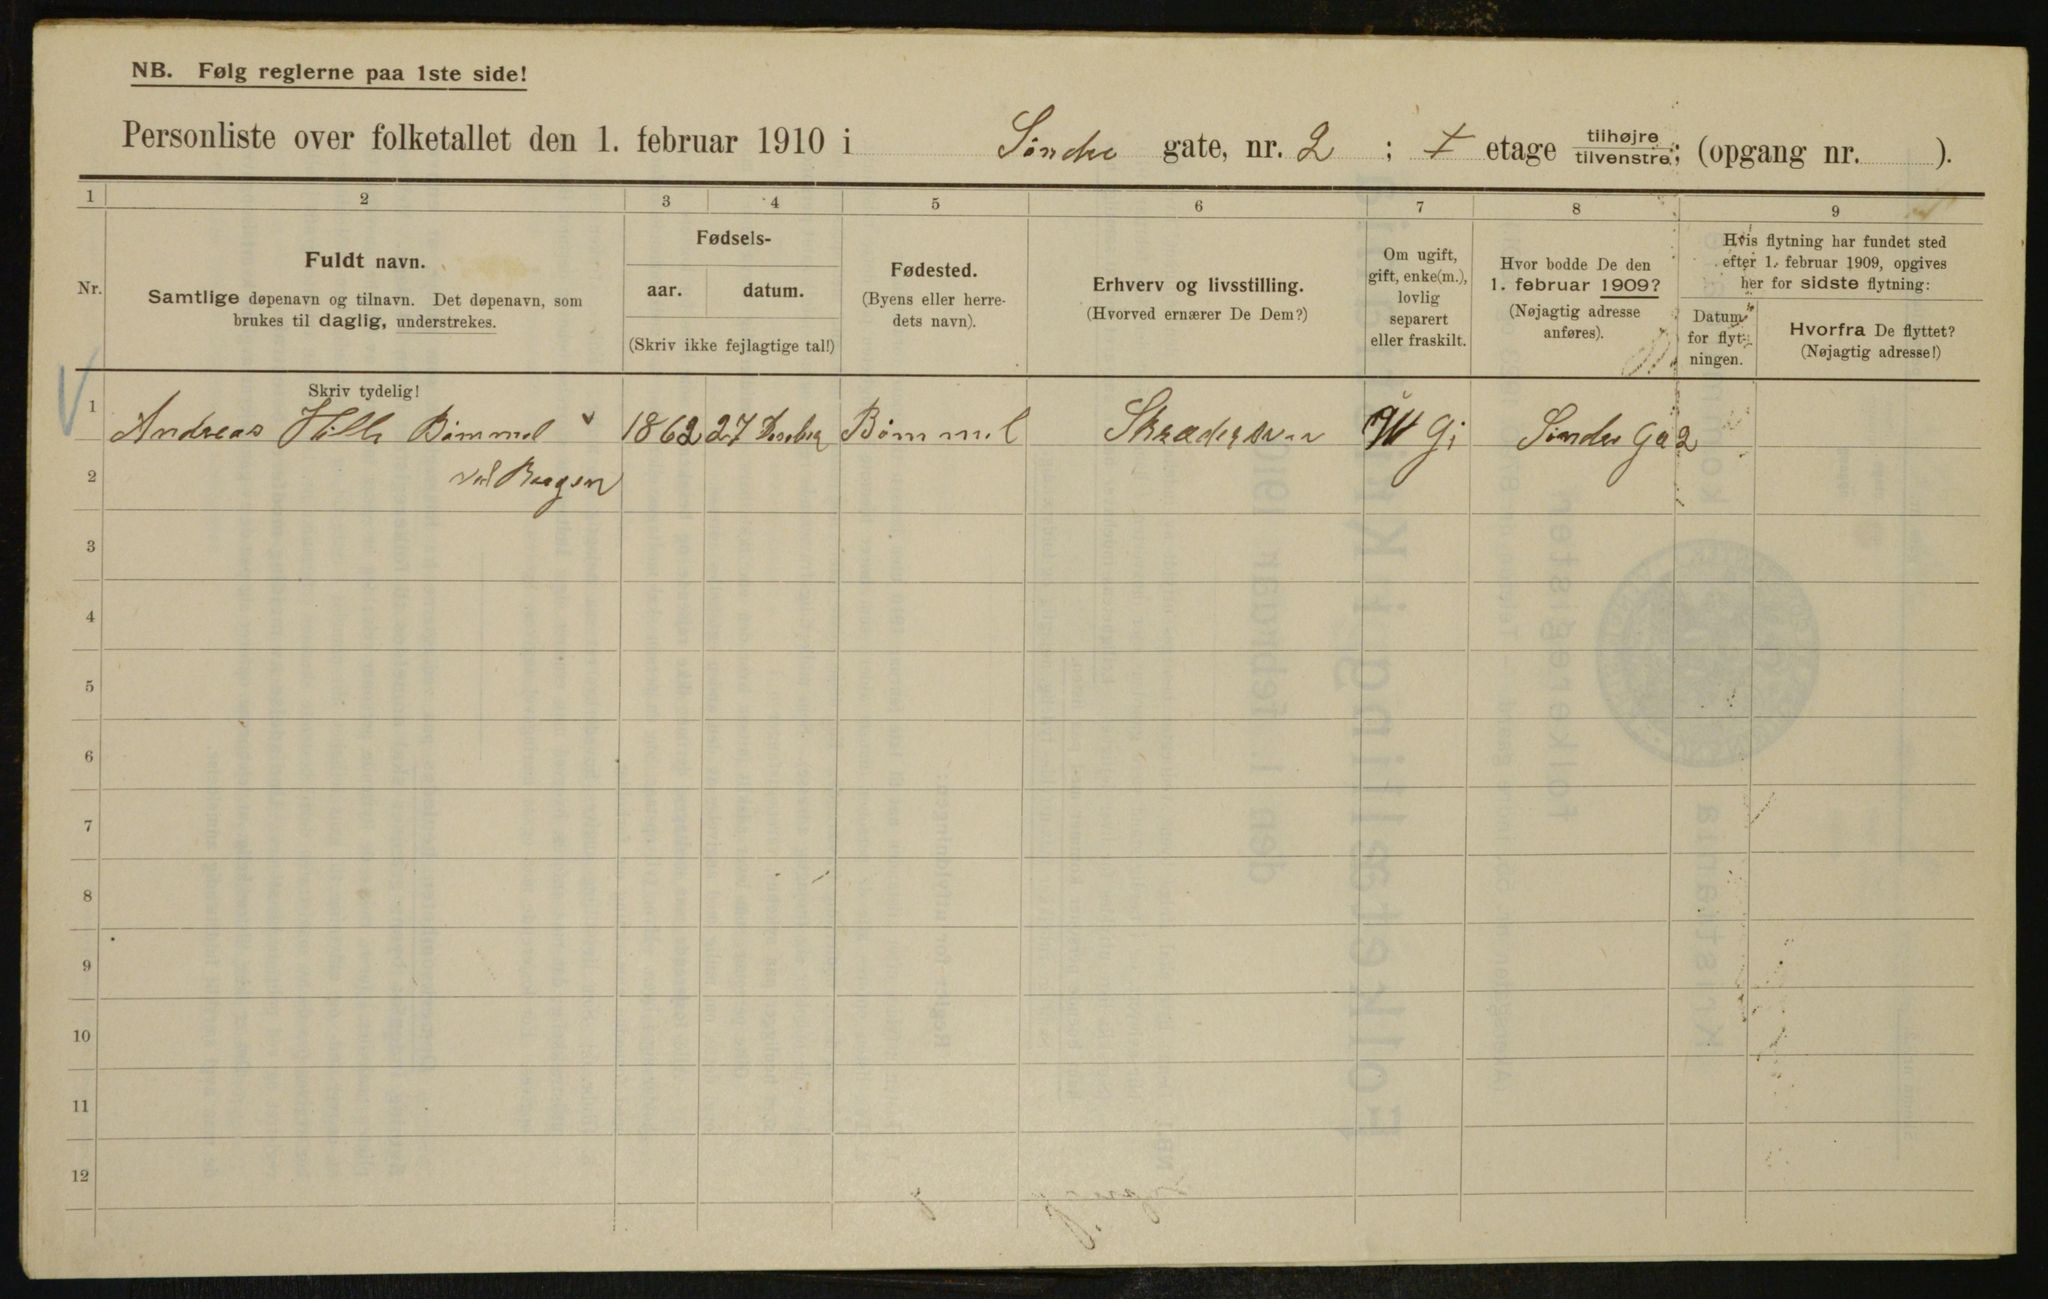 NB. Følg reglerne paa 1ste side!
Personliste over folketallet den 1. februar 1910 i Søndre gate, nr. 2 ; etage tilhøjre tilvenstre; (opgang nr. ).
1 2 3 4 5 6 7 8 9
Nr.
Fuldt navn.
Samtlige døpenavn og tilnavn. Det døpenavn, som
brukes til daglig, understrekes.
Skriv tydelig!
Fødsels-
aar. datum.
(Skriv ikke fejlagtige tal!)
Fødested.
(Byens eller herre-
dets navn).
Erhverv og livsstilling.
(Hvorved ernærer De Dem?)
Om ugift,
gift, enke(m.),
lovlig
separert
eller fraskilt.
Hvor bodde De den
1. februar 1909?
(Nøjagtig adresse
anføres).
Hvis flytning har fundet sted
efter 1. februar 1909, opgives
her for sidste flytning:
Datum
for flyt-
ningen.
Hvorfra De flyttet?
(Nøjagtig adresse!)
1 Andreas Bømmel 1862 27 Bømmel Gi Søndre Ga 2
2 ved Bergen
3
4
5
6
7
8
9
10
11
12